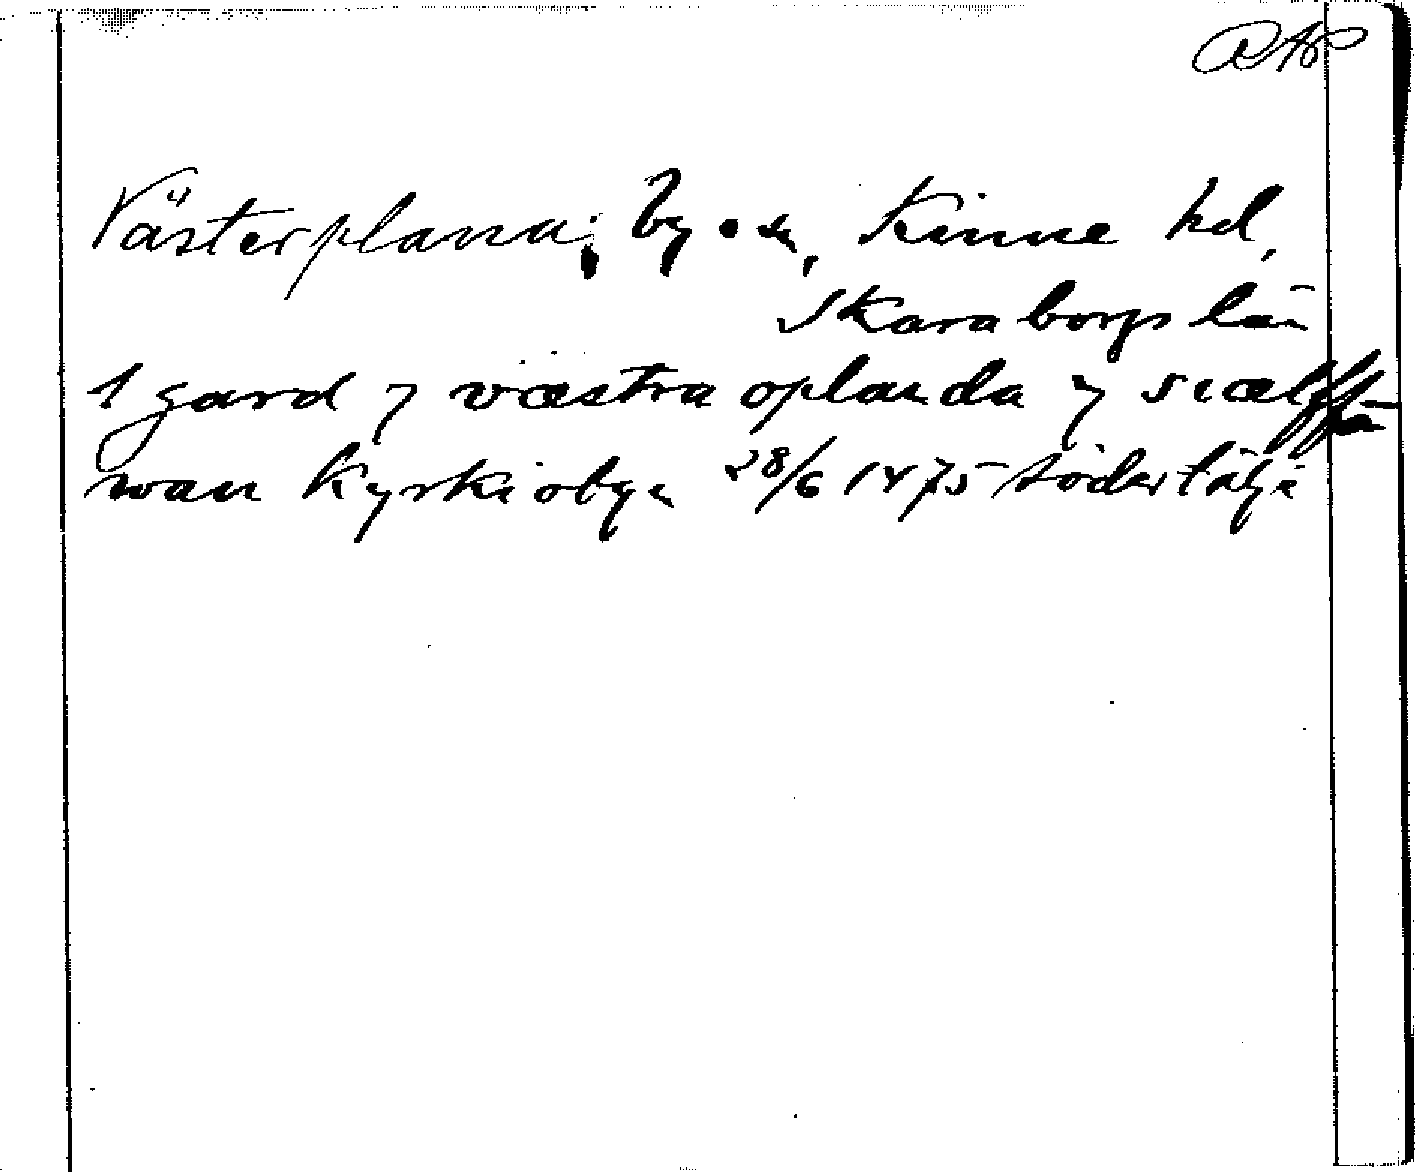 RAP
Västerplana, by o sn, Kinne hd,
Skaraborgs län
1 gard y væstra oplanda y siælffua
wan kyrkiobyn 28/6 1475 Södertälje